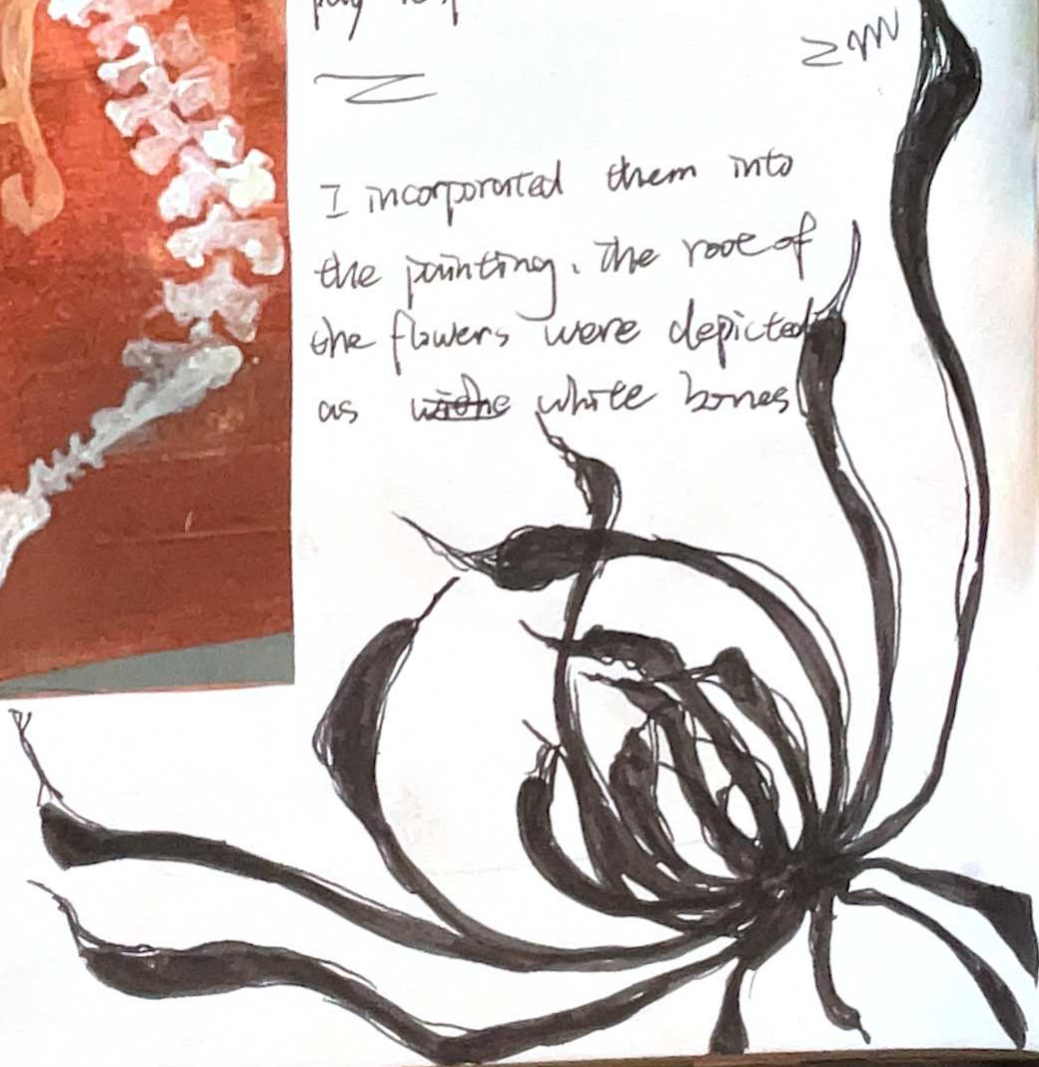 I incorporated them into
the painting. The root of
the flowers were depicted
as white bones